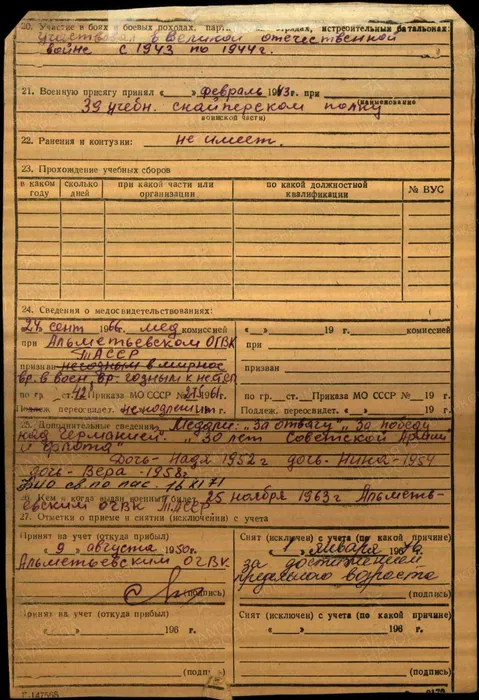 20. Участие в боях, боевых походах, партизанских отрядах, истребительных батальонах:
участвовал в Великой отечественной
войне с 1943 по 1944 г.
21. Военную присягу принял « » февраль 1943 г. при
39 учебн. снайперском полку
(наименование
воинской части)
22. Ранения и контузии: не имеет.
23. Прохождение учебных сборов
в каком году
сколько дней
при какой части или организации
по какой должностной квалификации
№ ВУС
24. Сведения о медосвидетельствованиях:
28 сент 1966 г. мед комиссией
при Альметьевском ОГВК
ТАССР
признан негодным в мирное
вр. в воен. вр. годным к нестр
по гр. ст. 42 Приказа МО СССР №
Подлеж. переосвидет. не подлежит г.
« » 19 г. комиссией
при
признан
по гр. ст. Приказа МО СССР № 19 г.
Подлеж. переосвидет. « » 19 г.
25. Дополнительные сведения Медали: "За отвагу", "За победу
над Германией". "30 лет Советской Армии
и флота"
Дочь - Надя 1952 г дочь - Нина - 1954
дочь - Вера - 1958 г.
26. Кем и когда выдан военный билет 25 ноября 1963 г Альметь-
евским ОГВК ТАССР.
27. Отметки о приеме и снятии (исключении) с учета
Принят на учет (откуда прибыл)
« 9 » августа 1950 г.
Альметьевским ОГВК
(подпись)
Снят (исключен) с учета (по какой причине)
« 1 » января 1976
за достижением
предельного возраста
(подпись)
Принят на учет (откуда прибыл)
« » 196 г.
(подпись)
Снят (исключен) с учета (по какой причине)
« » 196 г.
(подпись)
Г-147568